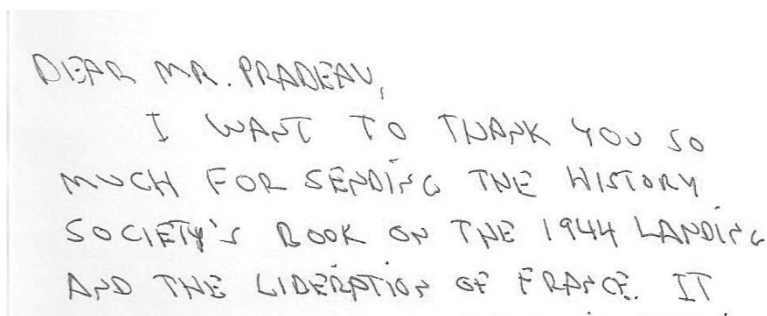 DEAR MR. PRADEAU,
I WANT TO THANK YOU SO
MUCH FOR SENDING THE HISTORY
SOCIETY'S BOOK ON THE 1944 LANDING
AND THE LIBERATION OF FRANCE. IT